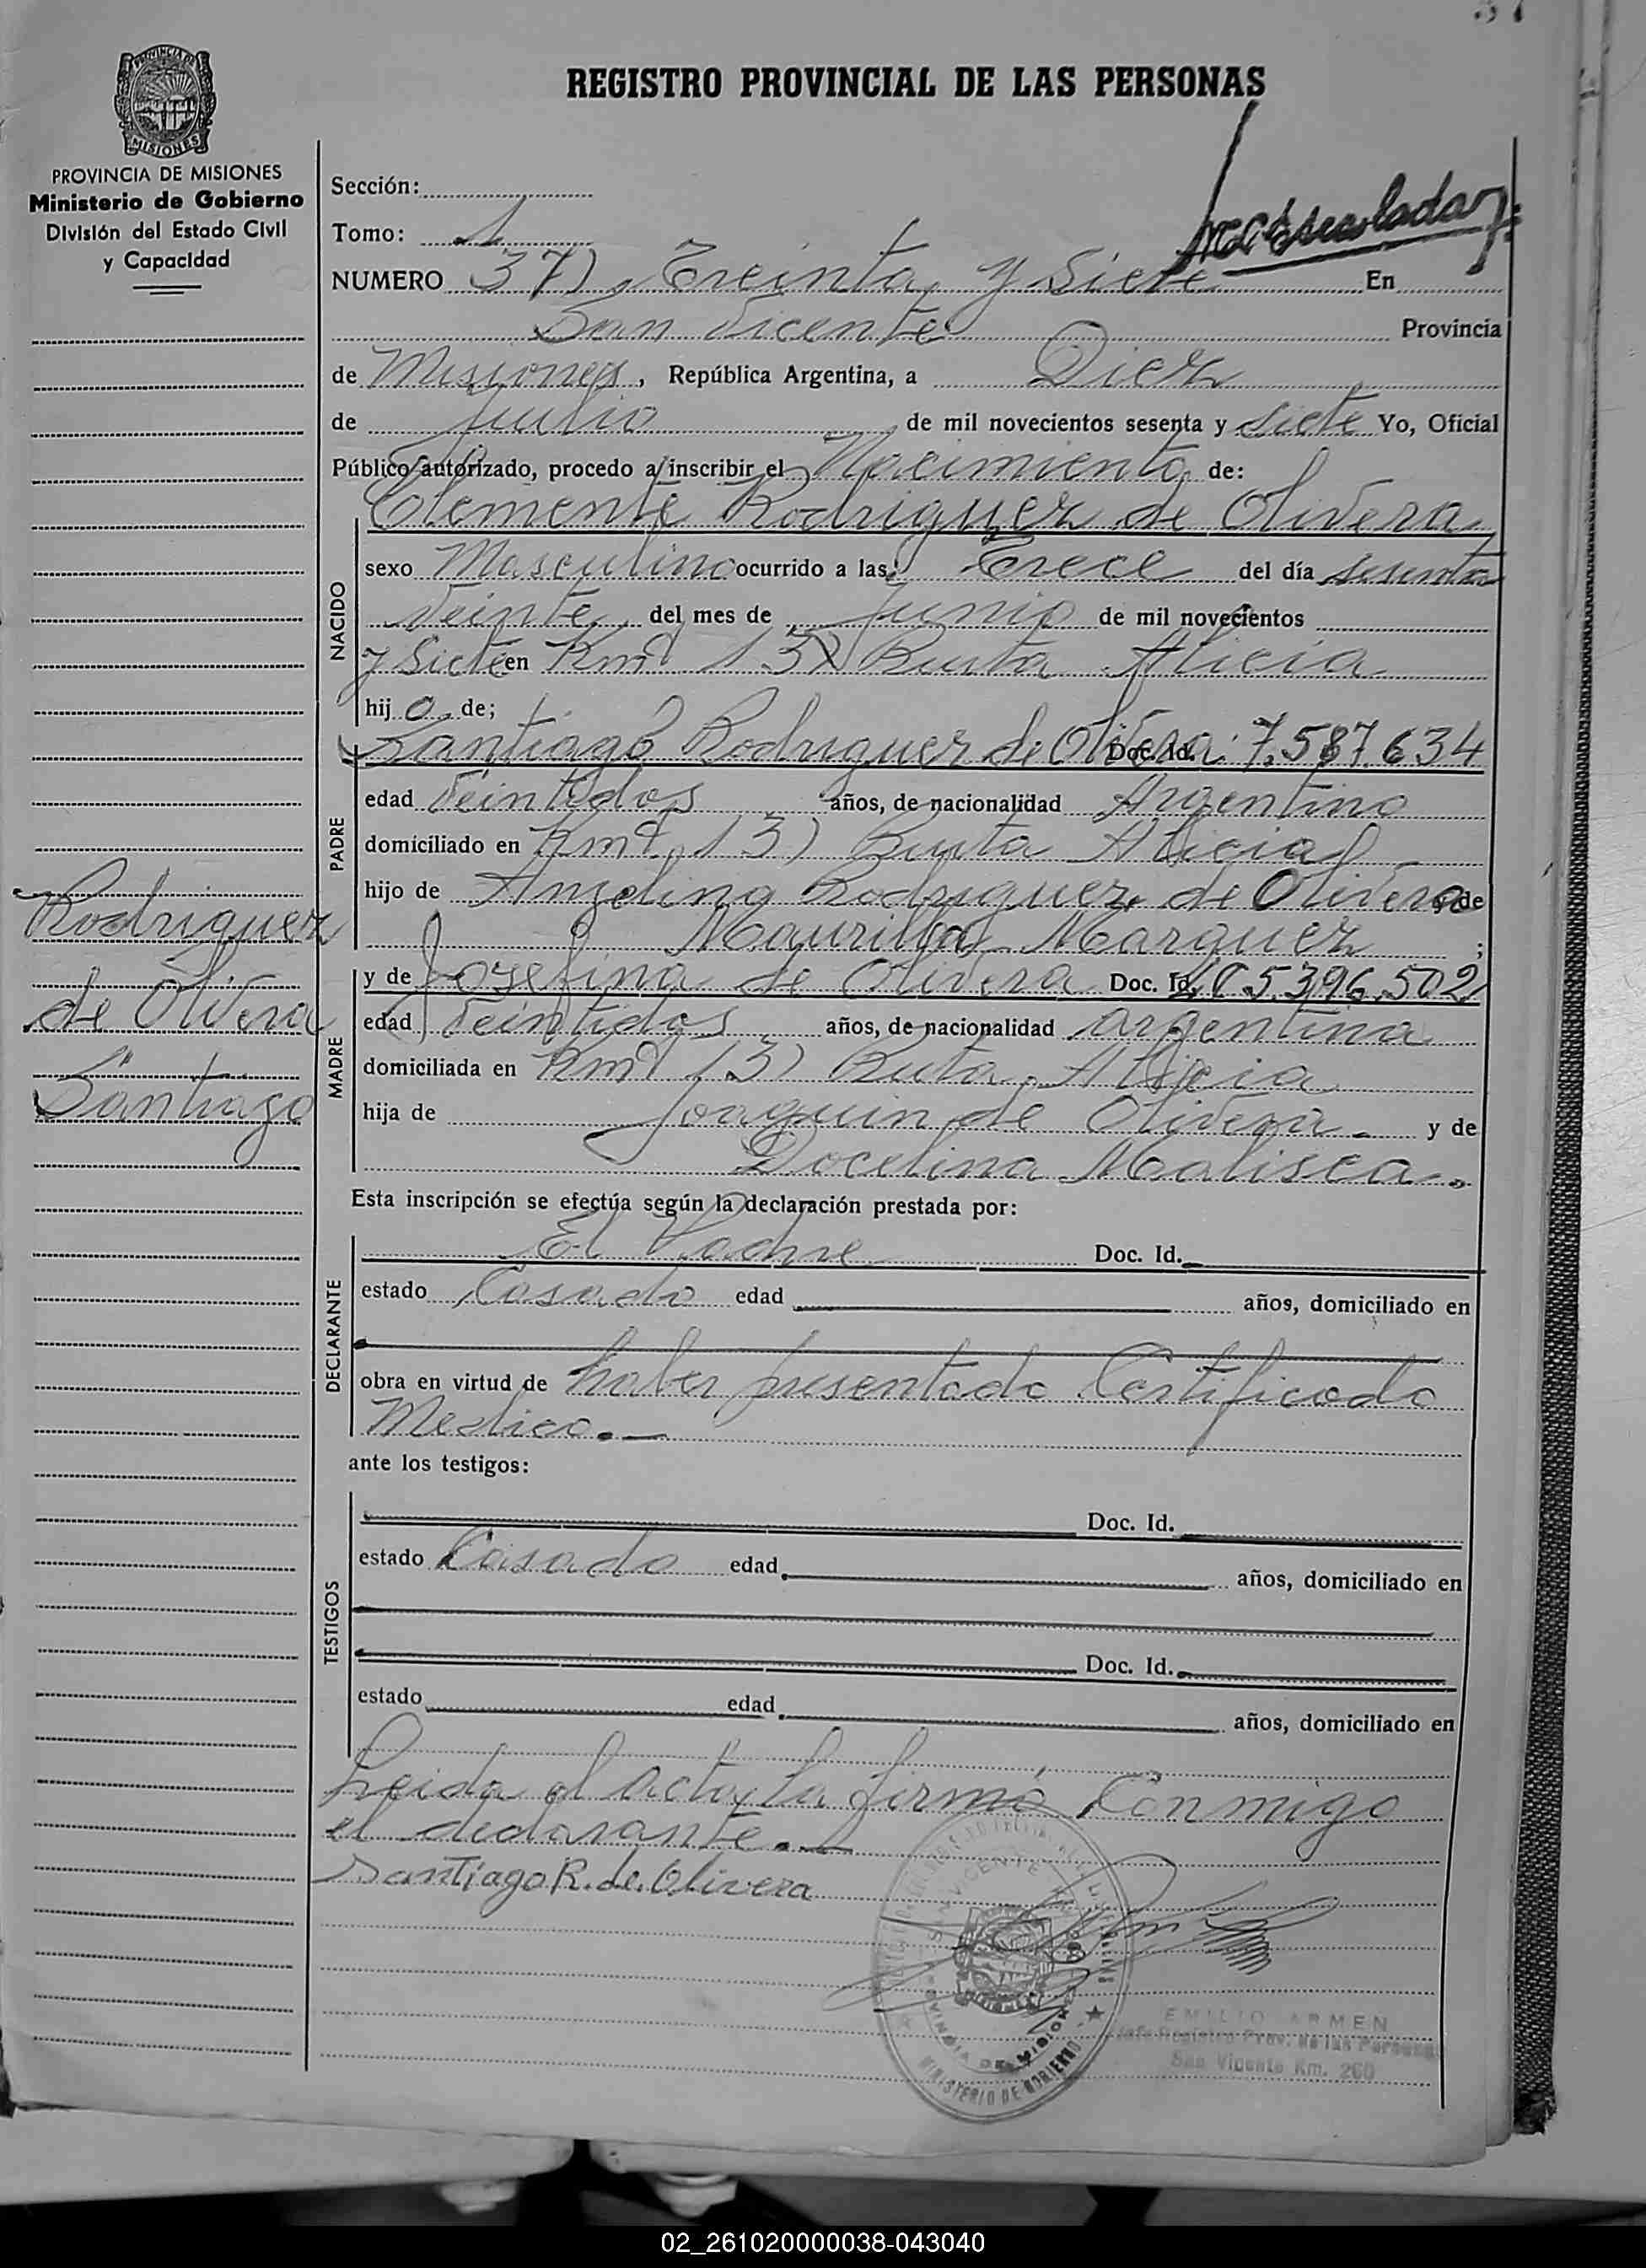 REGISTRO PROVINCIAL DE LAS PERSONAS
MISIONES
PROVINCIA DE MISIONES
Ministerio de Gobierno
División del Estado Civil
y Capacidad
Sección:
Tomo: 1
NUMERO 37) Treinta y Siete En
San Vicente Provincia
de Misiones, República Argentina, a Diez
de Julio de mil novecientos sesenta y siete Yo, Oficial
Público autorizado, procedo a inscribir el Nacimiento de:
Clemente Rodriguez de Olivera
NACIDO
sexo Masculino ocurrido a las Trece del día sesenta
Veinte del mes de Junio de mil novecientos
y Siete en Kmº 13) Ruta Alicia
hijo de;
Santiago Rodriguez de Olivera Doc. Id. 7.587.634
PADRE
edad Veintidos años, de nacionalidad Argentino
domiciliado en Kmº 13) Ruta Alicia
hijo de Anzelino Rodriguez de Olivera y de
Maurilia Marquez ;
Rodriguez
de Olivera
Santiago
MADRE
y de Josefina de Olivera Doc. Id. 5.396.502
edad Veintidos años, de nacionalidad argentina
domiciliada en Kmº 13) Ruta Alicia
hija de Joaquin de Olivera y de
Docelina
Esta inscripción se efectúa según la declaración prestada por:
DECLARANTE
El Padre Doc. Id.
estado Casado edad años, domiciliado en
obra en virtud de haber presentado Certificado
Medico.—
ante los testigos:
TESTIGOS
Doc. Id.
estado Casado edad años, domiciliado en
Doc. Id.
estado edad años, domiciliado en
Leida el acta, la firmó Conmigo
el declarante.—
Santiago R. de Olivera
PROVINCIA DE MISIONES
MINISTERIO DE GOBIERNO
EMILIO ARMEN
Jefe Registro Prov. de las Personas
San Vicente Km. 260
02_261020000038-043040